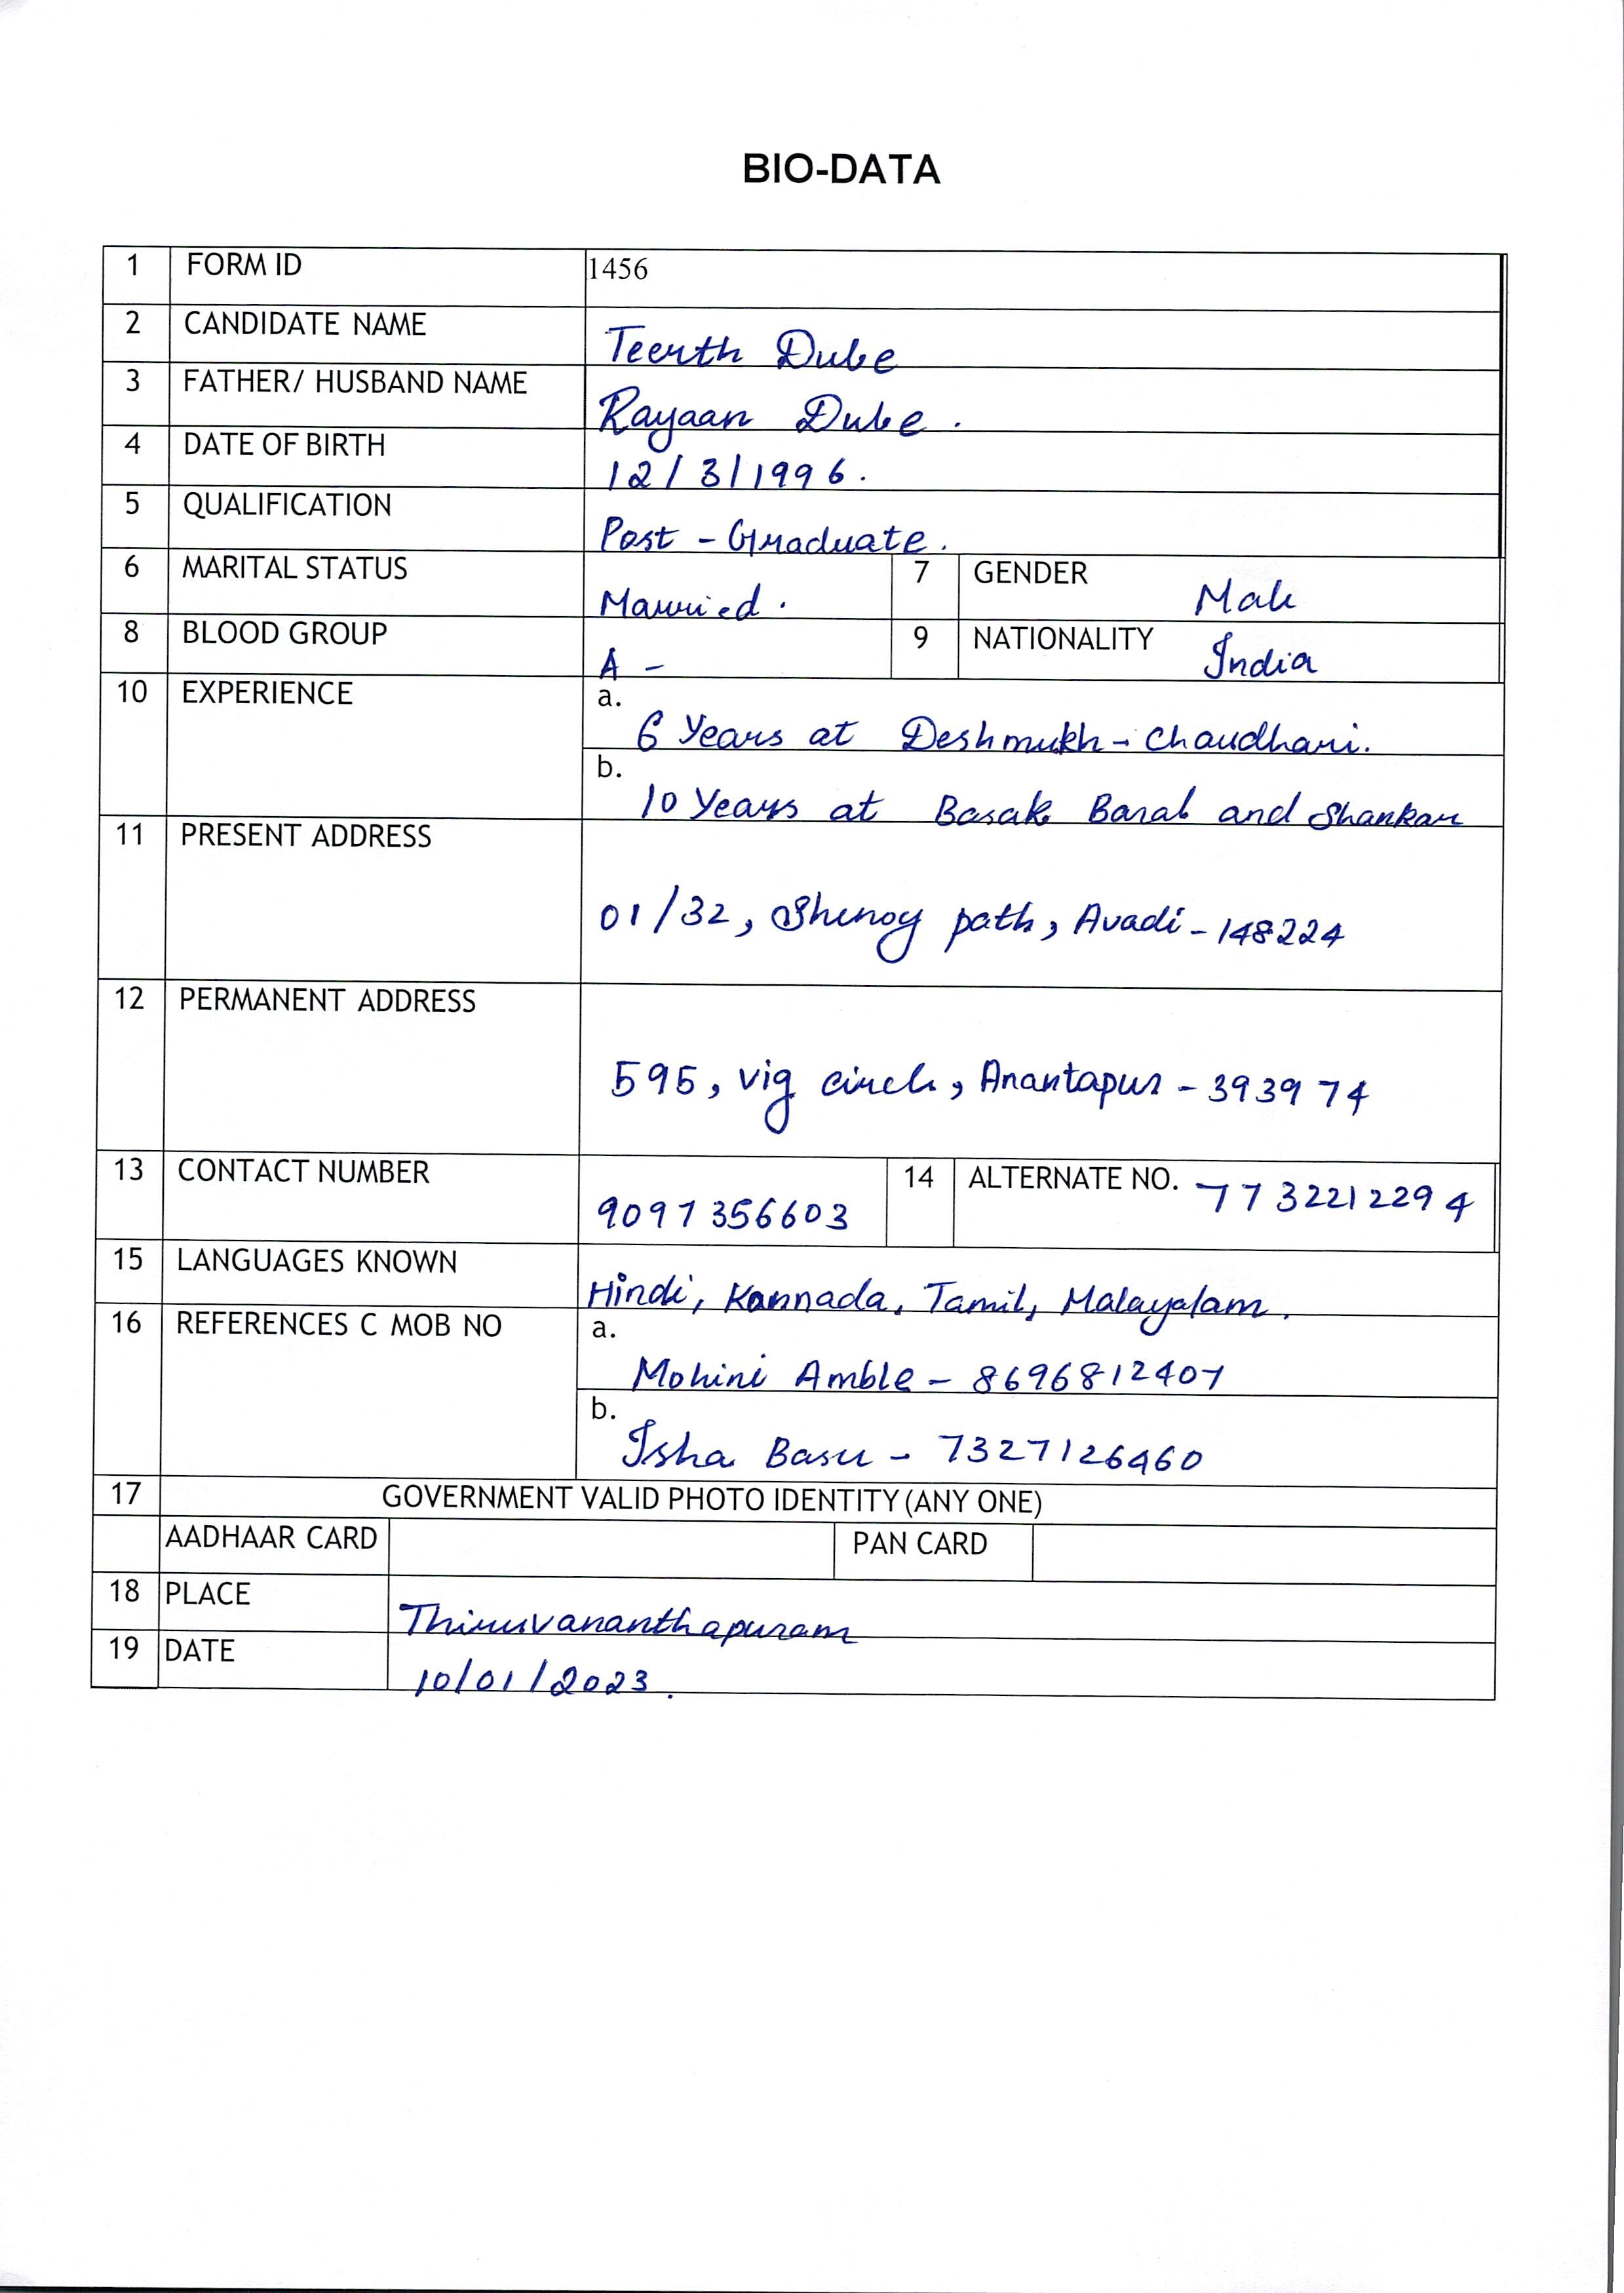 BIO-DATA
1 FORM ID 1456
2 CANDIDATE NAME Teerth Dube
3 FATHER/ HUSBAND NAME Rayaan Dube.
4 DATE OF BIRTH 12/3/1996.
5 QUALIFICATION Post - Graduate.
6 MARITAL STATUS Married. 7 GENDER Male
8 BLOOD GROUP A - 9 NATIONALITY India
10 EXPERIENCE a. 6 Years at Deshmukh - Chaudhari.
b. 10 Years at Basak Baral and Shankar
11 PRESENT ADDRESS
01/32, Shenoy path, Avadi - 148224
12 PERMANENT ADDRESS
595, vig circle, Anantapur - 393974
13 CONTACT NUMBER 9097356603 14 ALTERNATE NO. 7732212294
15 LANGUAGES KNOWN Hindi, Kannada, Tamil, Malayalam.
16 REFERENCES C MOB NO a. Mohini Amble - 8696812407
b. Isha Basu - 7327126460
17 GOVERNMENT VALID PHOTO IDENTITY (ANY ONE)
AADHAAR CARD PAN CARD
18 PLACE Thiruvananthapuram
19 DATE 10/01/2023.